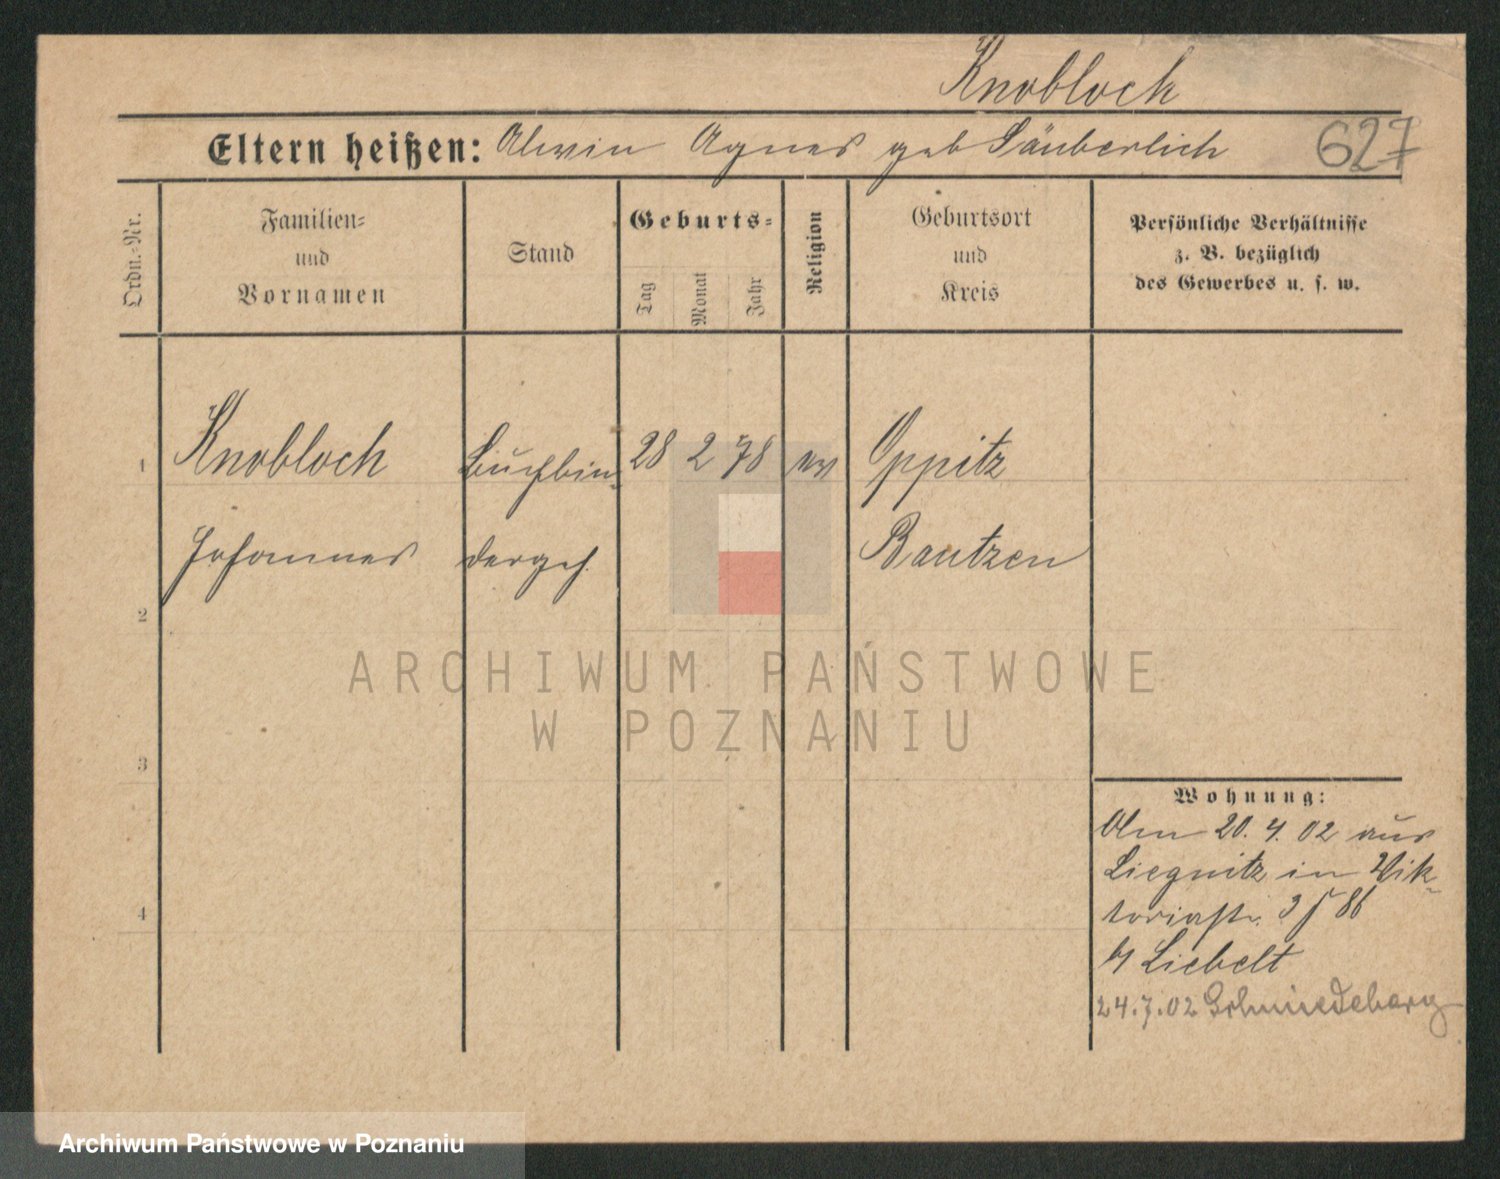 Knobloch
Eltern heißen: Alwin Agnes geb Säuberlich 627
Ordn.-Nr.
Familien-
und
Vornamen
Stand
Geburts-
Tag
Monat
Jahr
Religion
Geburtsort
und
Kreis
Persönliche Verhältnisse
z. B. bezüglich
des Gewerbes u. s. w.
1 Knobloch Buchbin- 28 2 78 ev Oppitz
Johannes dergeh. Bautzen
2
ARCHIWUM PAŃSTWOWE
W POZNANIU
3
Wohnung:
Am 20. 4. 02 aus
Liegnitz in Vik-
toriastr. 86
b/ Liebelt
4
24.7.02 Schmiedeberg
Archiwum Państwowe w Poznaniu